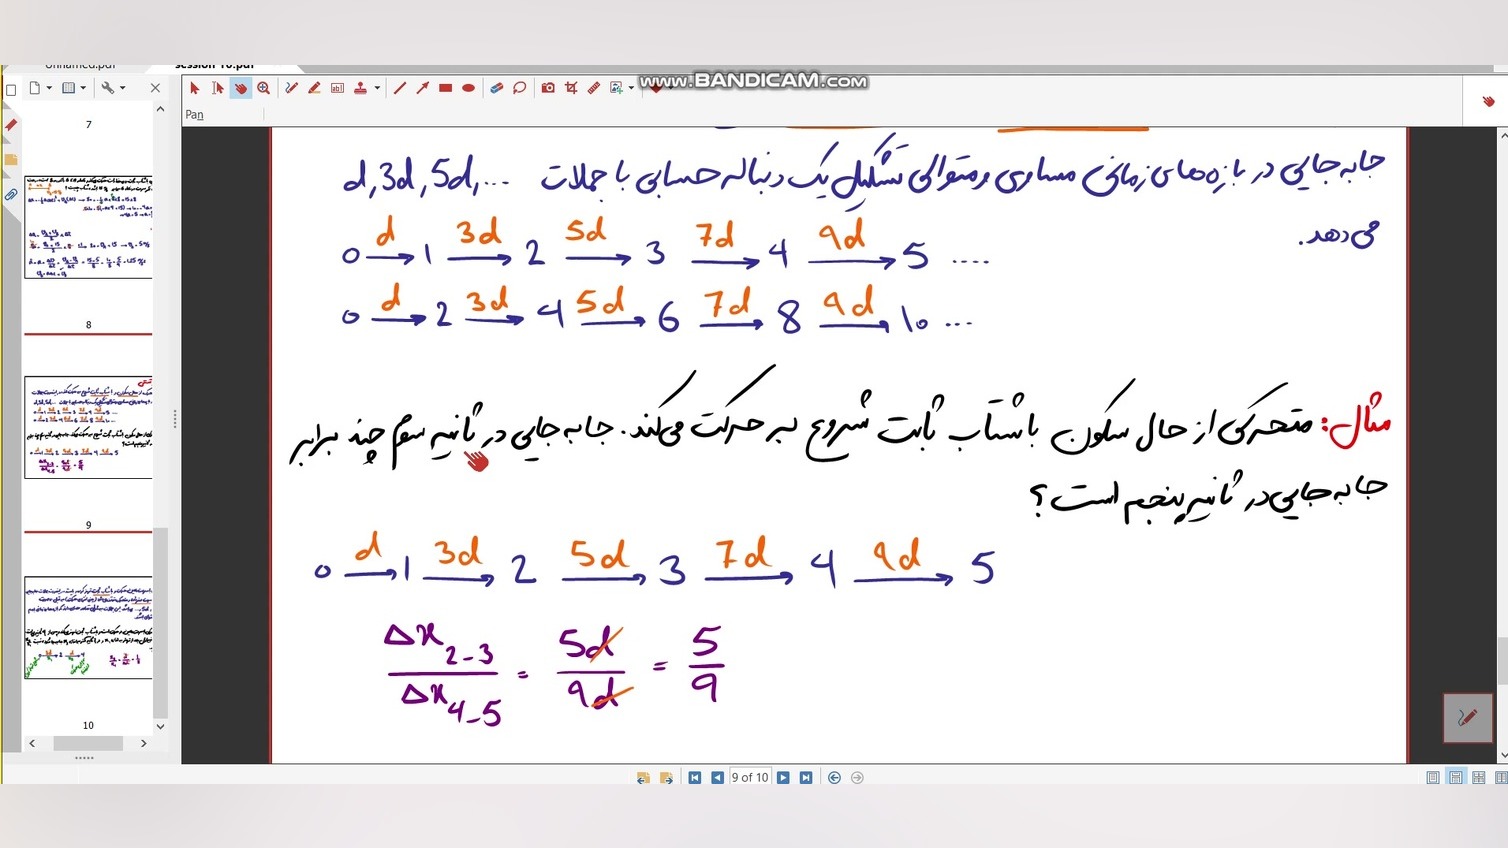 unnamed.pdf
session-10.pdf
WWW.BANDICAM.COM
Pan
7
8
9
10
جابه‌جایی در بازه‌های زمانی مساوی و متوالی تشکیل یک دنباله حسابی با جملات d, 3d, 5d, ...
می‌دهد.
0 →d 1 →3d 2 →5d 3 →7d 4 →9d 5 ....
0 →d 2 →3d 4 →5d 6 →7d 8 →9d 10 ...
مثال: متحرکی از حال سکون با شتاب ثابت شروع به حرکت می‌کند. جابه‌جایی در ثانیه سوم چند برابر
جابه‌جایی در ثانیه پنجم است؟
0 →d 1 →3d 2 →5d 3 →7d 4 →9d 5
Δx2-3 / Δx4-5 = 5d / 9d = 5 / 9
9 of 10